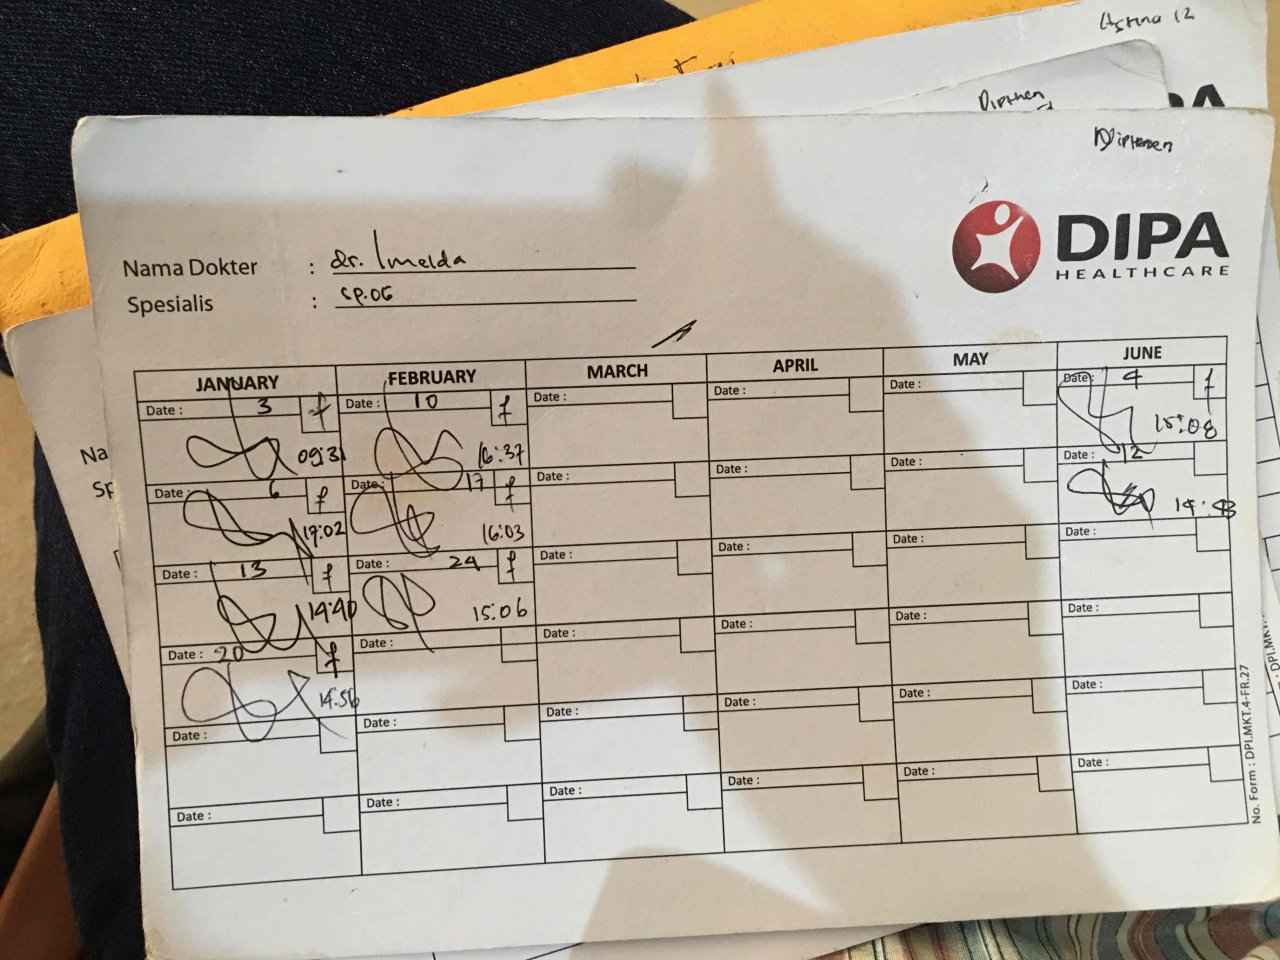 Astina 12
Dipthen
Dipthen
DIPA
HEALTHCARE
Nama Dokter : dr. Imelda
Spesialis : Sp.OG
JANUARY FEBRUARY MARCH APRIL MAY JUNE
Date : 3 f Date : 10 f Date : Date : Date : Date : 4 f
09:3 16:37 15:08
Date : 6 f Date : 17 f Date : Date : Date : Date : 12
17:02 16:03 14:43
Date : 13 f Date : 24 f Date : Date : Date : Date :
14:40 15:06
Date : 20 f Date : Date : Date : Date : Date :
14.56
Date : Date : Date : Date : Date : Date :
Date : Date : Date : Date : Date : Date :
No. Form : DPI.MKT.4-FR.27